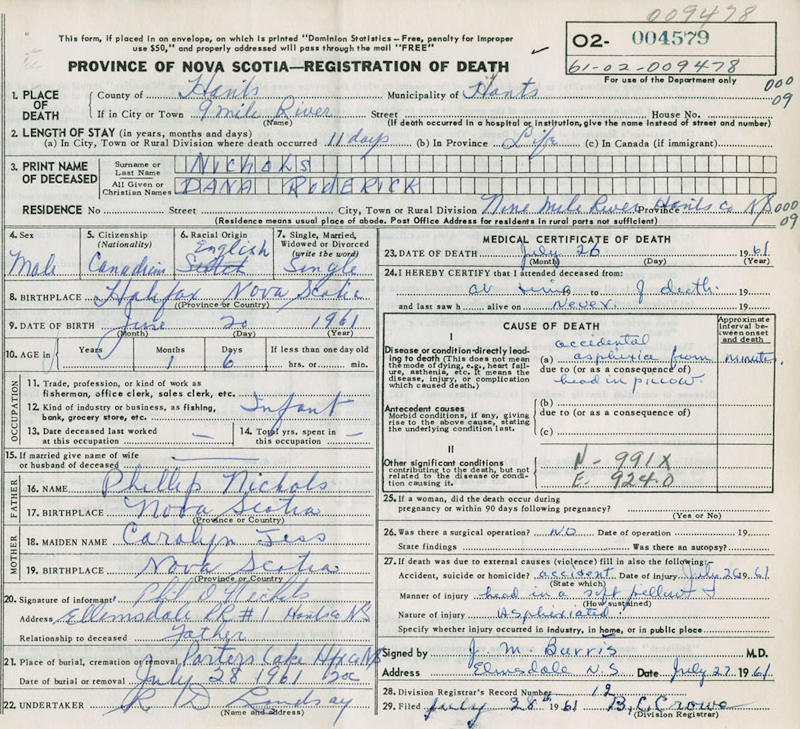 009478
This form, if placed in an envelope, on which is printed "Dominion Statistics—Free, penalty for improper
use $50," and properly addressed will pass through the mail "FREE"
02- 004579
61-02-009478
For use of the Department only
PROVINCE OF NOVA SCOTIA—REGISTRATION OF DEATH
000
09
1. PLACE OF DEATH
County of Hants Municipality of Hants
If in City or Town 9 mile River Street House No.
(Name) (If death occurred in a hospital or institution, give the name instead of street and number)
2. LENGTH OF STAY (in years, months and days)
(a) In City, Town or Rural Division where death occurred 11 days (b) In Province Life (c) In Canada (if immigrant)
3. PRINT NAME OF DECEASED
Surname or Last Name NICHOLS
All Given or Christian Names DANA RODERICK
RESIDENCE No Street City, Town or Rural Division Nine Mile River Hants Co Province NS 000
09
(Residence means usual place of abode. Post Office Address for residents in rural parts not sufficient)
4. Sex Male
5. Citizenship (Nationality) Canadian
6. Racial Origin English Scotch
7. Single, Married, Widowed or Divorced (write the word) Single
8. BIRTHPLACE Halifax Nova Scotia
(Province or Country)
9. DATE OF BIRTH June 20 1961
(Month) (Day) (Year)
10. AGE in Years Months 1 Days 6 If less than one day old hrs. or min.
OCCUPATION
11. Trade, profession, or kind of work as
fisherman, office clerk, sales clerk, etc.
12. Kind of industry or business, as fishing,
bank, grocery store, etc. Infant
13. Date deceased last worked
at this occupation —
14. Total yrs. spent in
this occupation —
15. If married give name of wife
or husband of deceased
FATHER
16. NAME Phillip Nichols
17. BIRTHPLACE Nova Scotia
(Province or Country)
MOTHER
18. MAIDEN NAME Carolyn Jess
19. BIRTHPLACE Nova Scotia
(Province or Country)
20. Signature of informant Phil D Nichols
Address Ellemsdale RR #1 Hants co NS
Relationship to deceased Father
21. Place of burial, cremation or removal Porters Lake Hfx Co NS
Date of burial or removal July 28 1961
22. UNDERTAKER R D Lindsay
(Name and address)
MEDICAL CERTIFICATE OF DEATH
23. DATE OF DEATH July 26 1961
(Month) (Day) (Year)
24. I HEREBY CERTIFY that I attended deceased from:
at time to of death 19
and last saw h alive on Never 19
CAUSE OF DEATH
Approximate interval between onset and death
I
Disease or condition directly leading to death (This does not mean the mode of dying, e.g., heart failure, asthenia, etc. It means the disease, injury, or complication which caused death.)
accidental
(a) asphexia from minutes
due to (or as a consequence of)
head in pillow.
Antecedent causes
Morbid conditions, if any, giving rise to the above cause, stating the underlying condition last.
(b)
due to (or as a consequence of)
(c)
II
Other significant conditions
contributing to the death, but not related to the disease or condition causing it.
N - 991X
E. 924.0
25. If a woman, did the death occur during
pregnancy or within 90 days following pregnancy?
(Yes or No)
26. Was there a surgical operation? NO Date of operation 19
State findings Was there an autopsy?
27. If death was due to external causes (violence) fill in also the following:
Accident, suicide or homicide? accident Date of injury July 26 1961
(State which)
Manner of injury head in a soft pellow
(How sustained)
Nature of injury Asphexiated
Specify whether injury occurred in industry, in home, or in public place
Signed by J. M. Burris M.D.
Address Elmsdale N.S. Date July 27 1961
28. Division Registrar's Record Number 12
29. Filed July 28th 1961 B.C. Crowe
(Division Registrar)